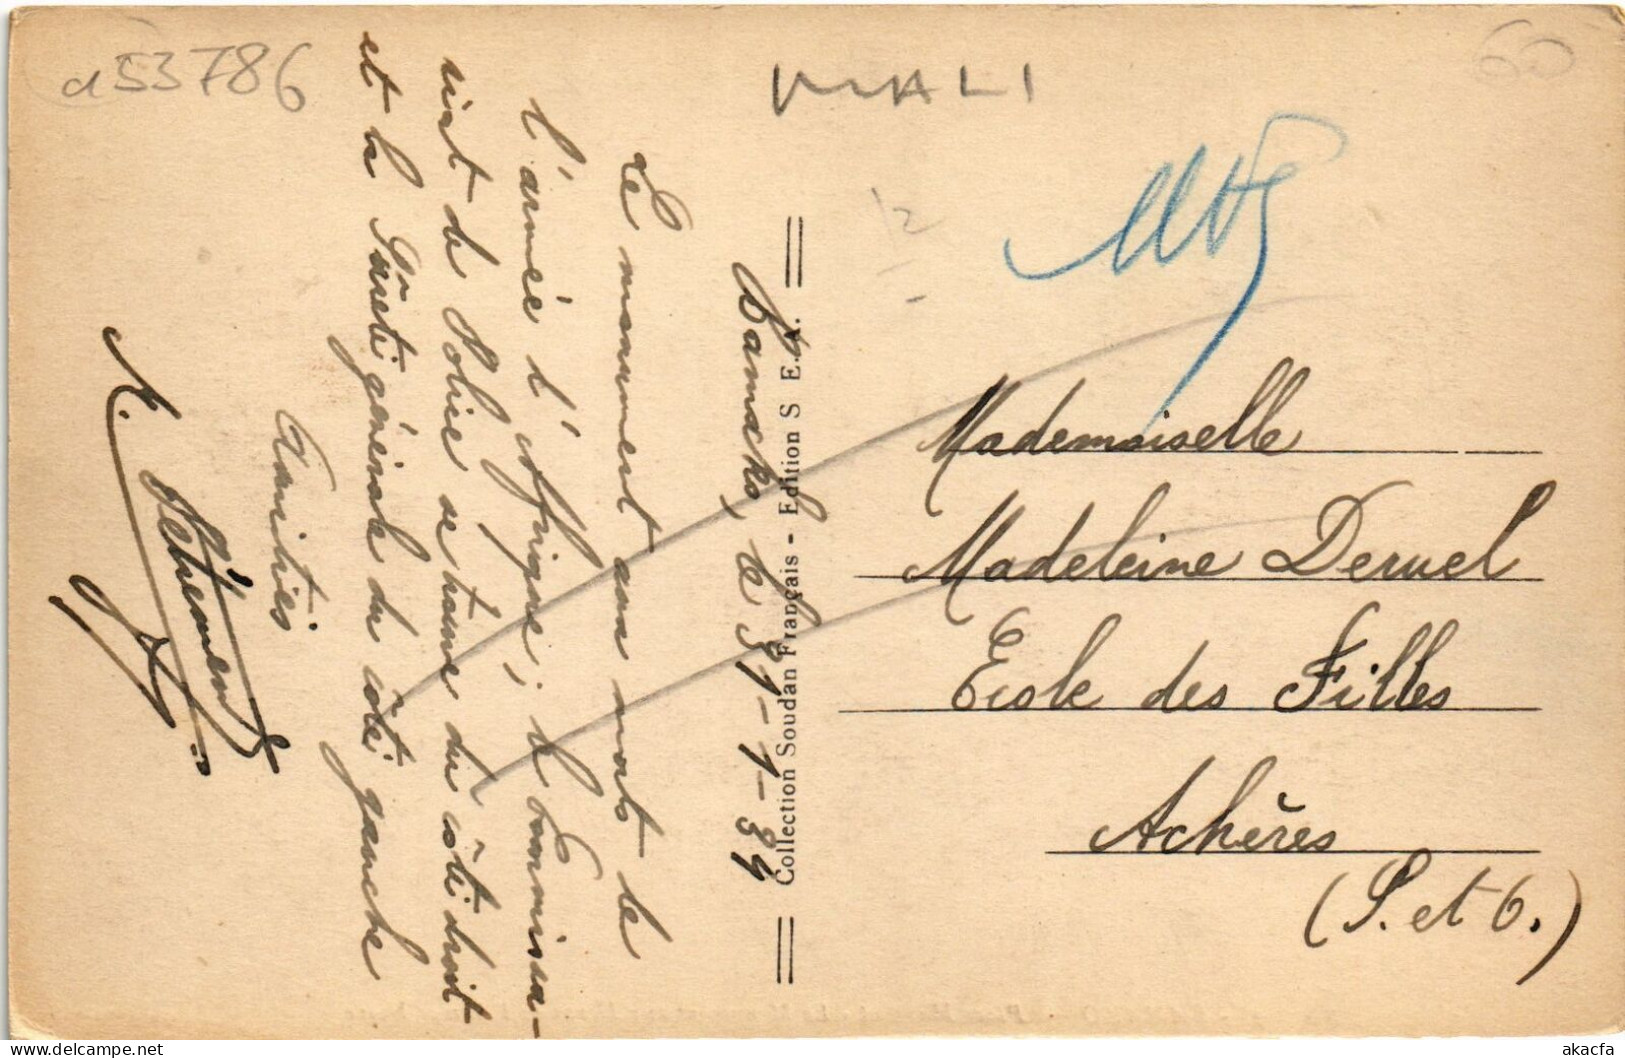 a53786
MALI
60
Bamako, le 31-1-39
Le monument aux morts de
l'armée d'Afrique ; le Commissa-
riat de Police se trouve du côté droit
et la Sûreté générale du côté gauche
Amitiés
Collection Soudan Français - Edition S E. A.
Mademoiselle
Madeleine Deruel
Ecole des Filles
Achères
(S. et O.)
akacfa
delcampe.net